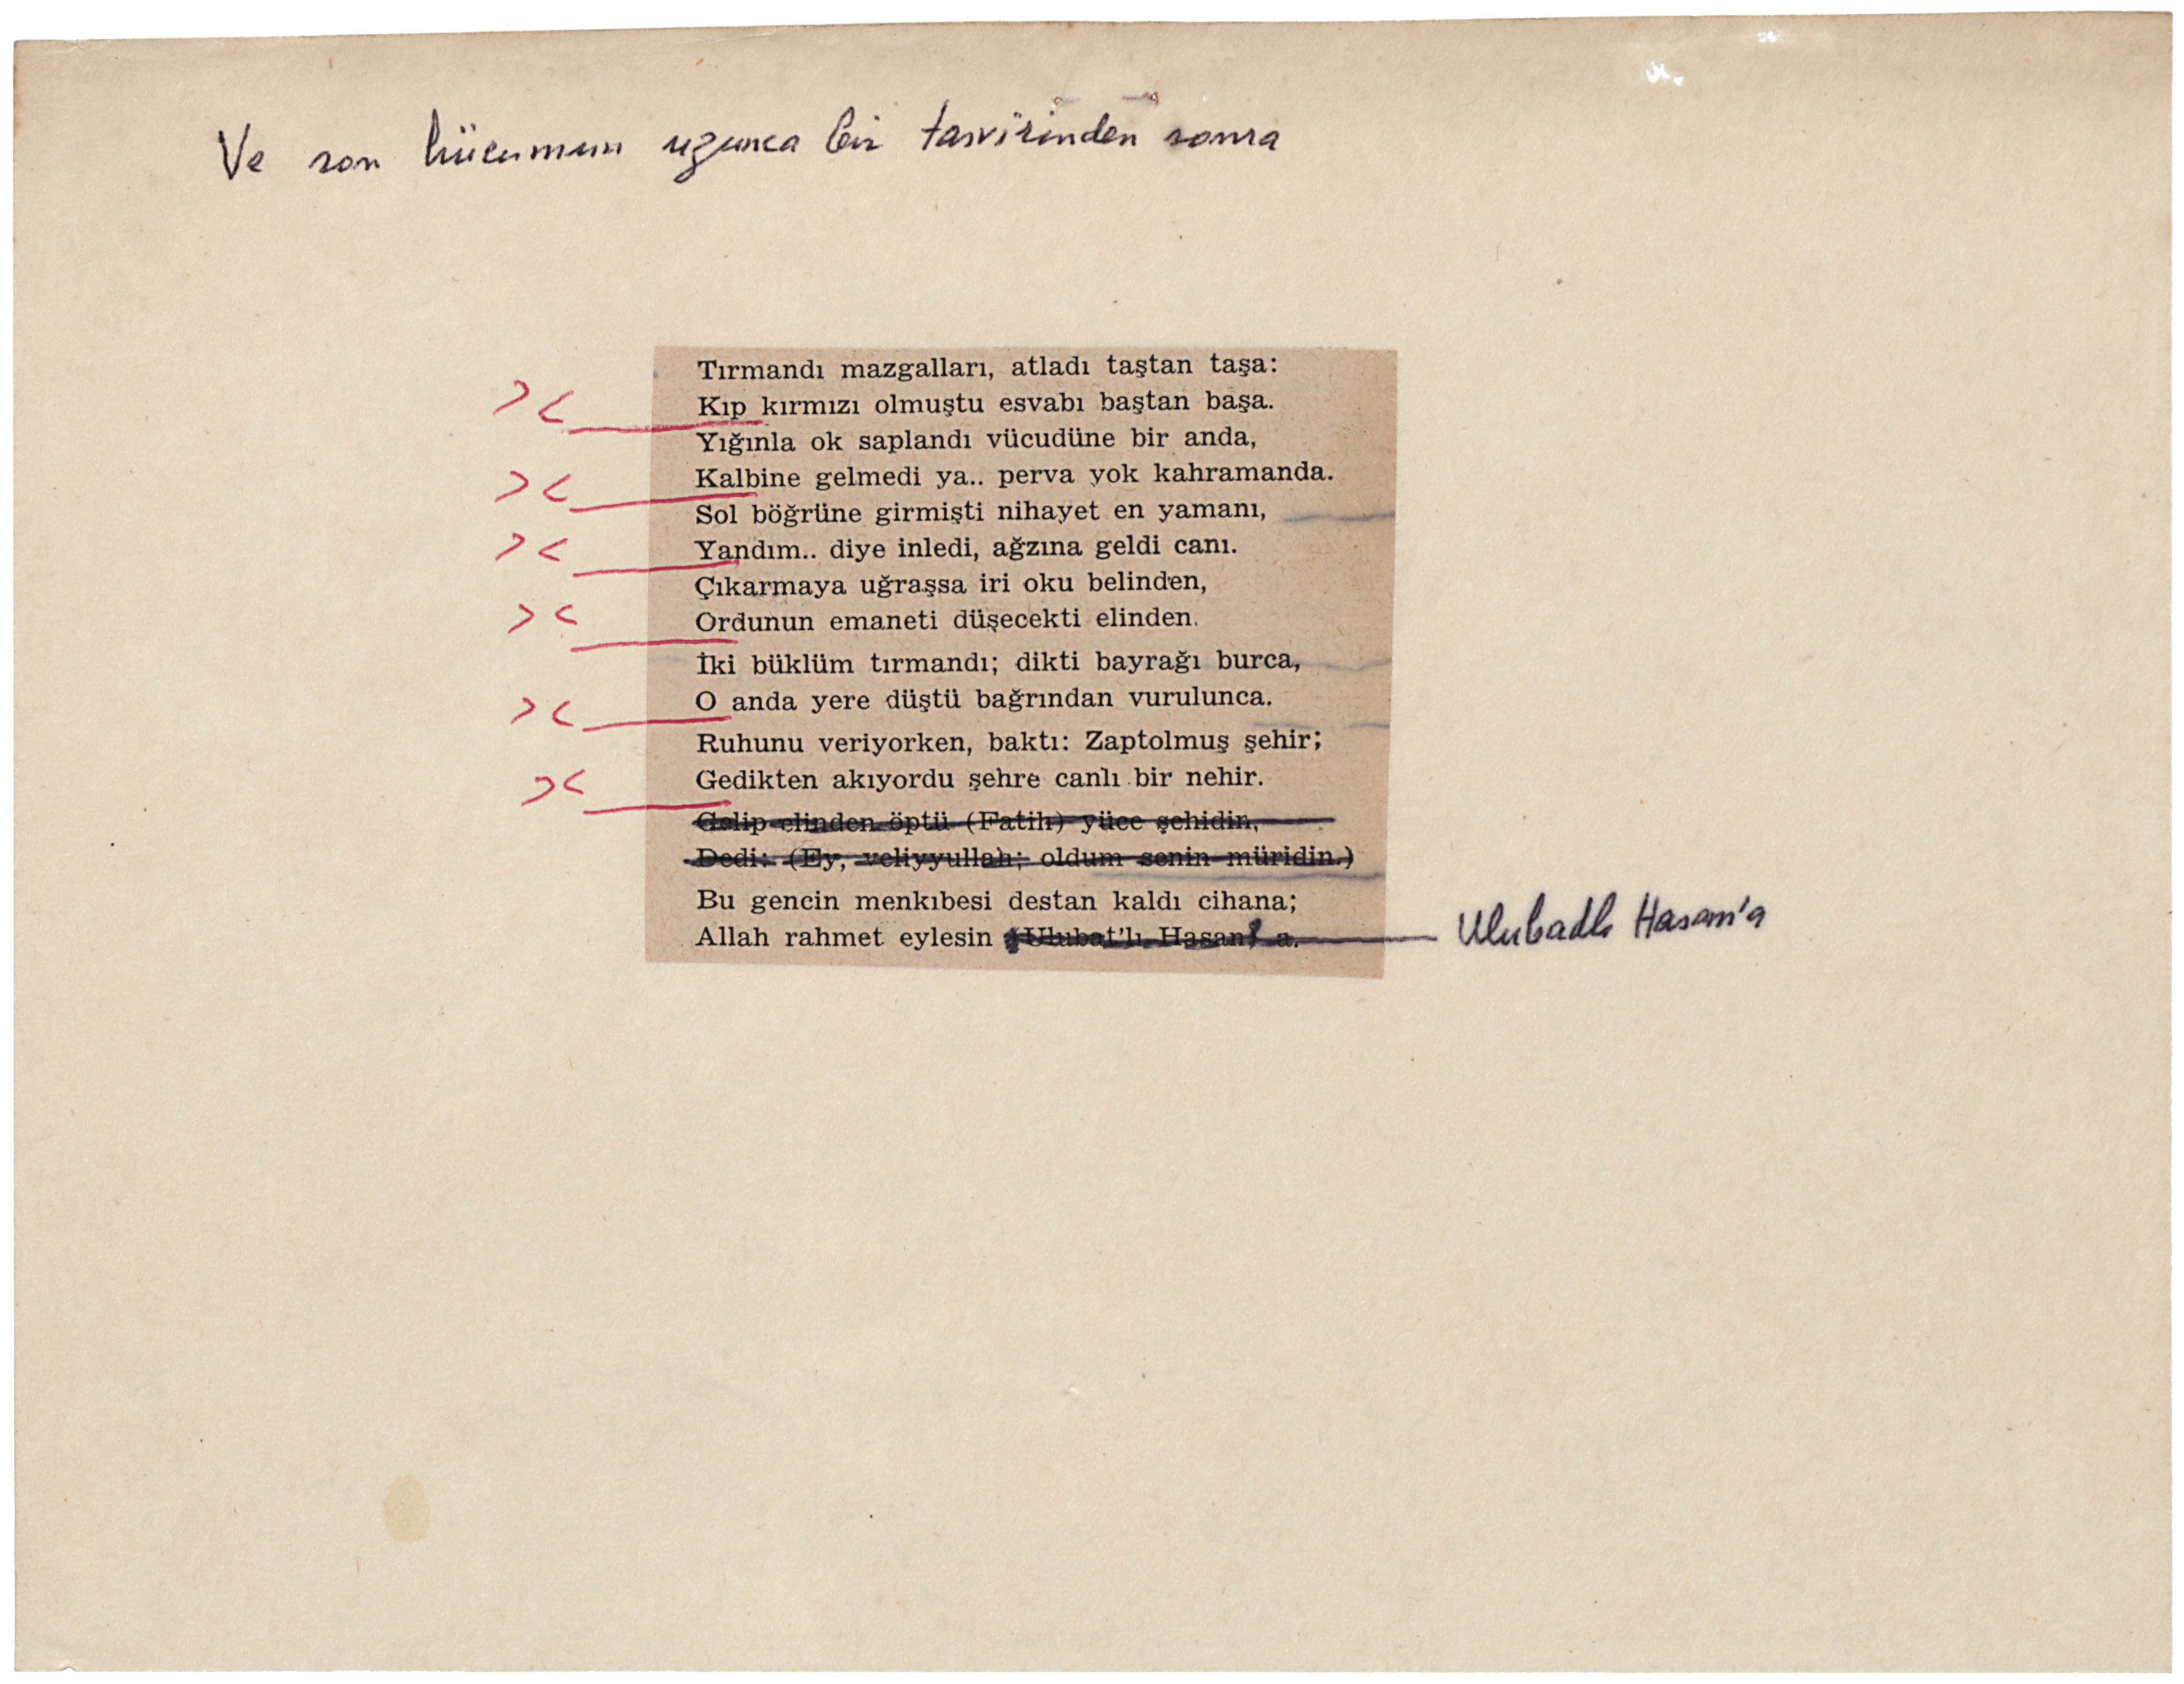 Ve son hücumun uzunca bir tasvirinden sonra
Tırmandı mazgalları, atladı taştan taşa:
Kıp kırmızı olmuştu esvabı baştan başa.
Yığınla ok saplandı vücudüne bir anda,
Kalbine gelmedi ya.. perva yok kahramanda.
Sol böğrüne girmişti nihayet en yamanı,
Yandım.. diye inledi, ağzına geldi canı.
Çıkarmaya uğraşsa iri oku belinden,
Ordunun emaneti düşecekti elinden.
İki büklüm tırmandı; dikti bayrağı burca,
O anda yere düştü bağrından vurulunca.
Ruhunu veriyorken, baktı: Zaptolmuş şehir;
Gedikten akıyordu şehre canlı bir nehir.
Gelip elinden öptü (Fatih) yüce şehidin,
Dedi: (Ey, veliyyullah; oldum senin müridin.)
Bu gencin menkıbesi destan kaldı cihana;
Allah rahmet eylesin (Ulubat'lı Hasan) a.
Ulubadlı Hasan'a